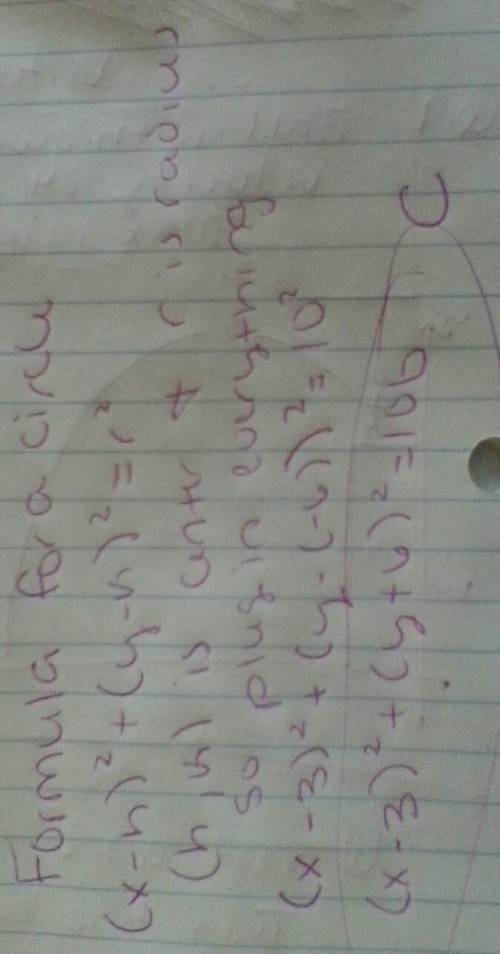 Formula for a circle
(x-h)² + (y-k)² = r²
(h,k) is cntr + r is radius
so plug in everything
(x-3)² + (y-(-4))² = 10²
(x-3)² + (y+4)² = 100 C